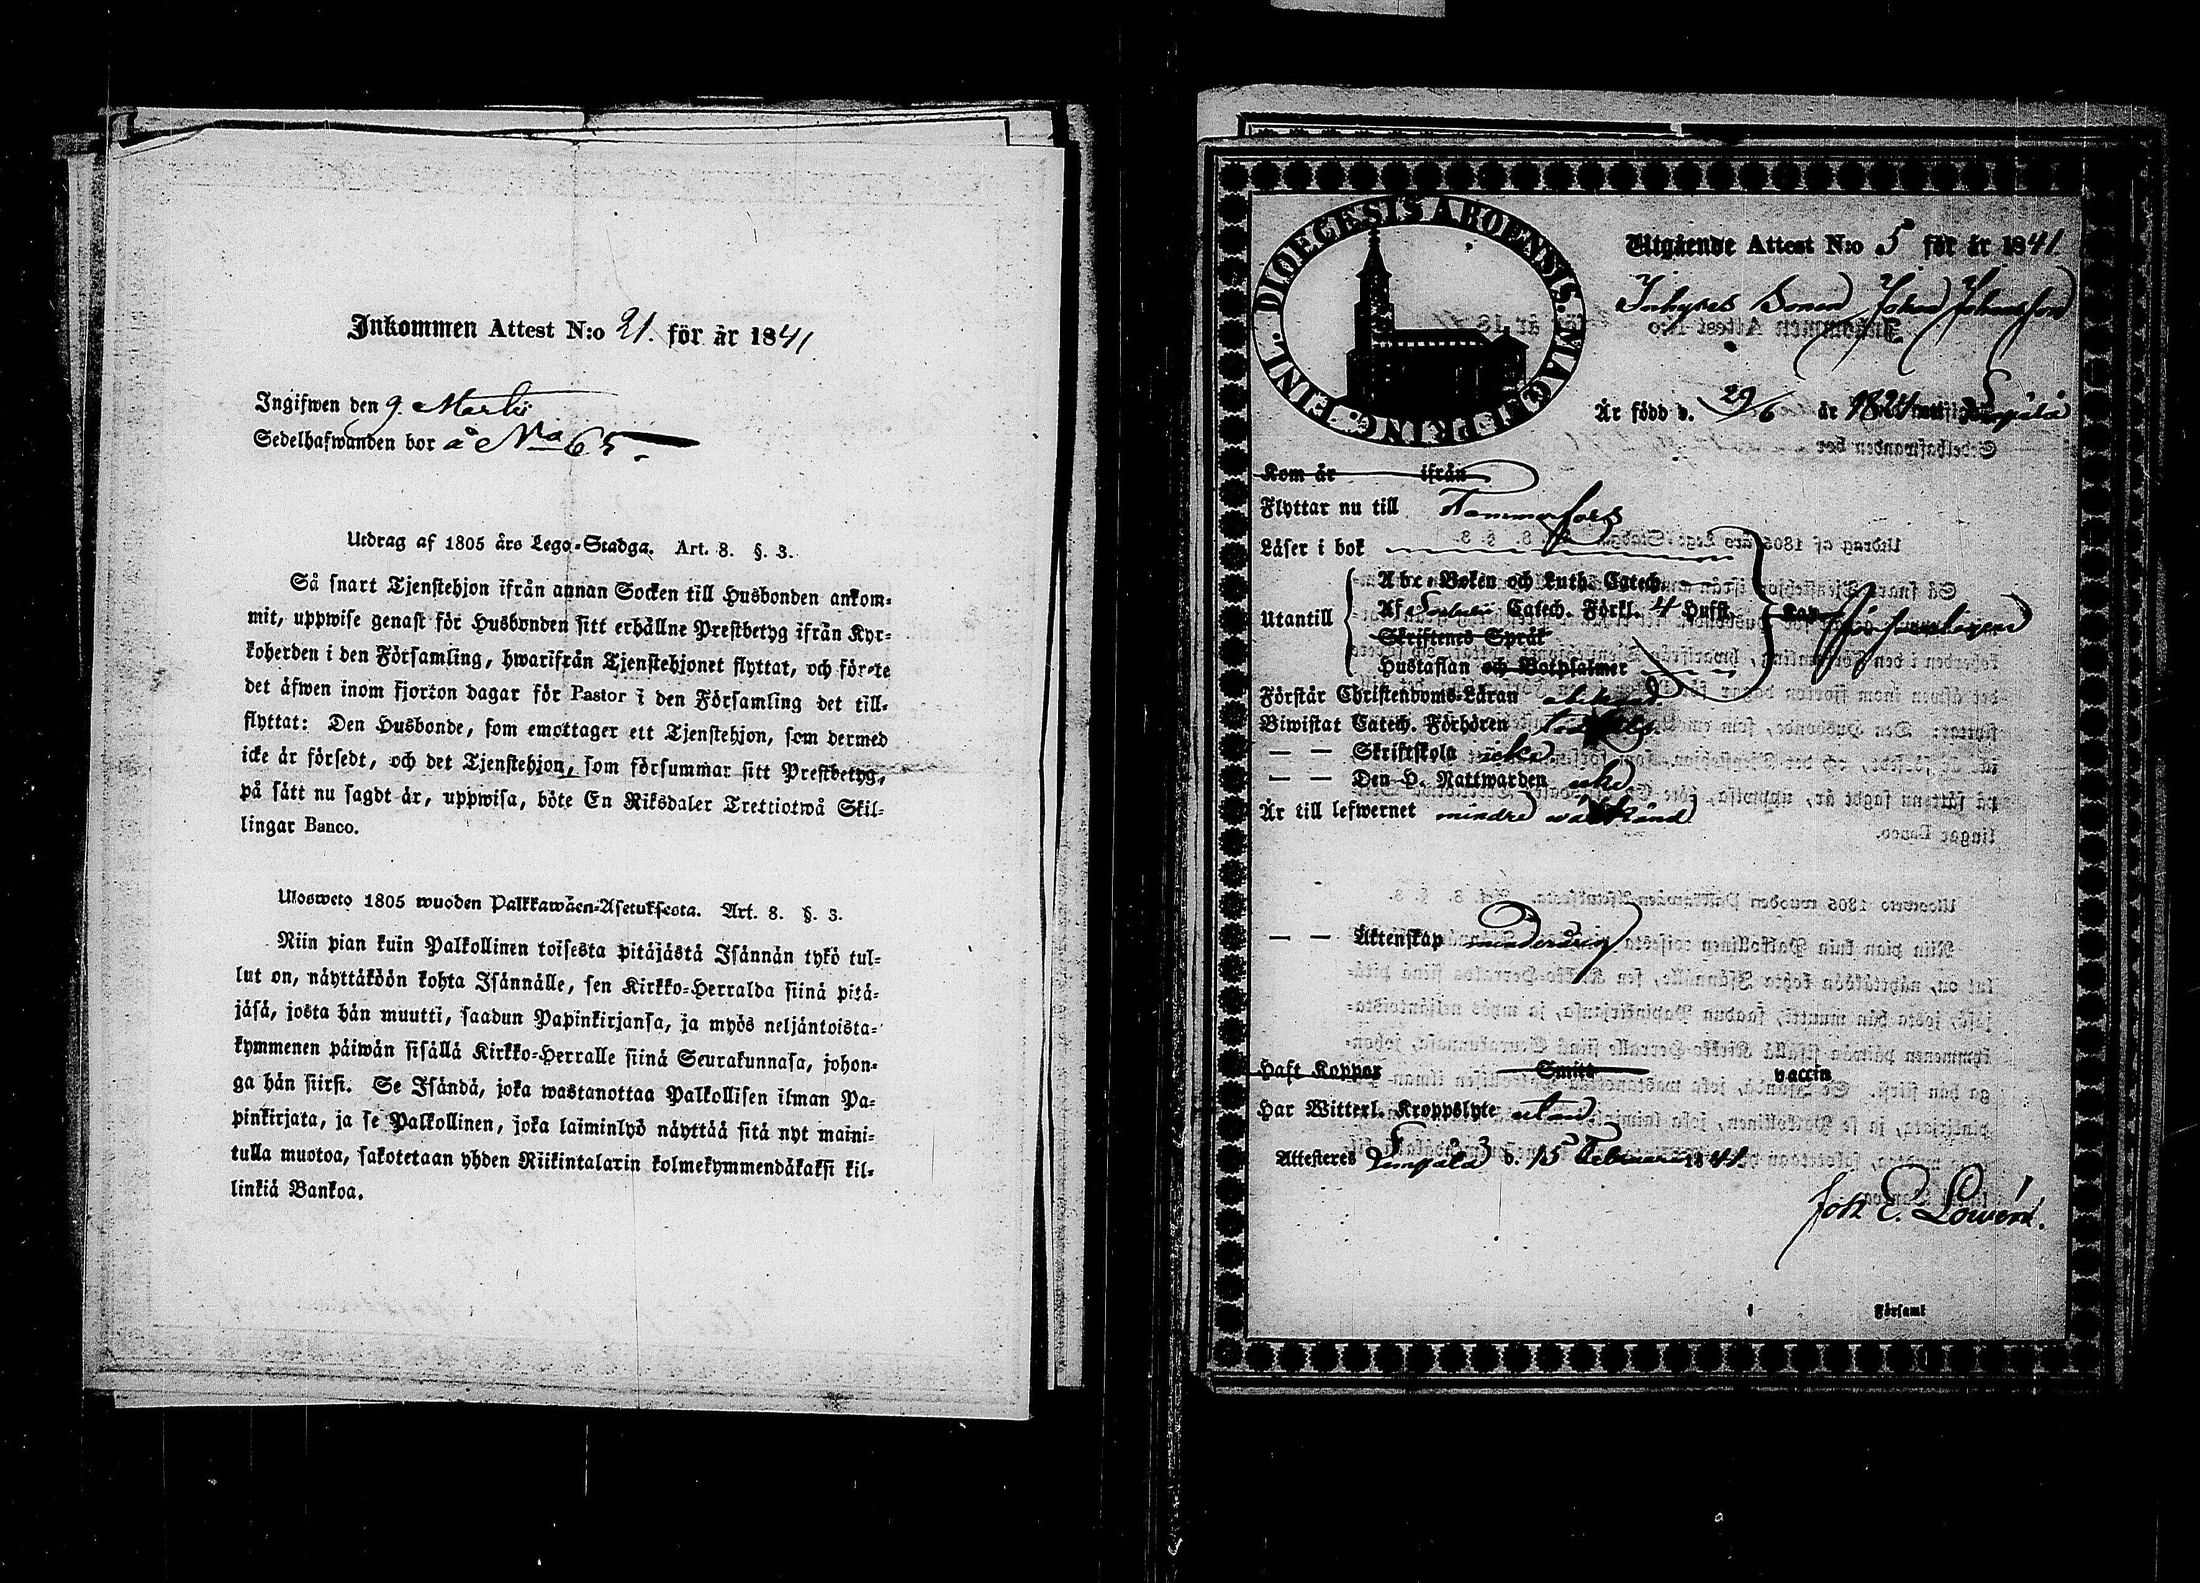 Inkommen Attest N:o 21. för år 1841
Ingifwen den 9. Martii
Sedelhafwanden bor å No 65.
Utdrag af 1805 års Lego-Stadga. Art. 8. §. 3.
Så snart Tjenstehjon ifrån annan Socken till Husbonden ankom-
mit, uppwise genast för Husbonden sitt erhållne Prestbetyg ifrån Kyr-
koherden i den Församling, hwarifrån Tjenstehjonet flyttat, och förete
det äfwen inom fjorton dagar för Pastor i den Församling det till-
flyttat: Den Husbonde, som emottager ett Tjenstehjon, som dermed
icke är försedt, och det Tjenstehjon, som försummar sitt Prestbetyg,
på sätt nu sagdt är, uppwisa, böte En Riksdaler Trettiotwå Skil-
lingar Banco.
Ulosweto 1805 wuoden Palkkawäen-Asetuksesta. Art. 8. §. 3.
Niin pian kuin Palkollinen toisesta pitäjästä Isännän tykö tul-
lut on, näyttäköön kohta Isännälle, sen Kirkko-Herralda siinä pitä-
jäsä, josta hän muutti, saadun Papinkirjansa, ja myös neljäntoista-
kymmenen päiwän sisällä Kirkko-Herralle siinä Seurakunnasa, johon-
ga hän siirsi. Se Isändä, joka wastanottaa Palkollisen ilman Pa-
pinkirjata, ja se Palkollinen, joka laiminlyö näyttää sitä nyt maini-
tulla muotoa, sakotetaan yhden Riikintalarin kolmekymmendäkaksi kil-
linkiä Bankoa.
DIOECESIS ABOENSIS. MAGN. PRINC. FINL.
Utgående Attest N:o 5 för år 1841.
Inhyses Sonen Johan Johansson
Är född d. 29/6 år 1824 Lempälä
Kom år ifrån
Flyttar nu till Tammerfors
Läser i bok
Abc-Boken och Luth. Catech.
Utantill Af Catech. Förkl. 4 Hufst.
Skriftenes Språk
Hustaflan och Botpsalmer
Förstår Christendoms-Läran
Biwistat Catech. Förhören
— — Skriftskola icke
— — Den H. Nattwarden icke
Är till lefwernet mindre wäl känd
— — Äktenskap minderårig
Haft Koppor Smitt vaccin
Har Witterl. Kroppslyte utan
Attesteres Lempälä d. 15 Februarii 1841.
Joh E. Lowén.
i Församl